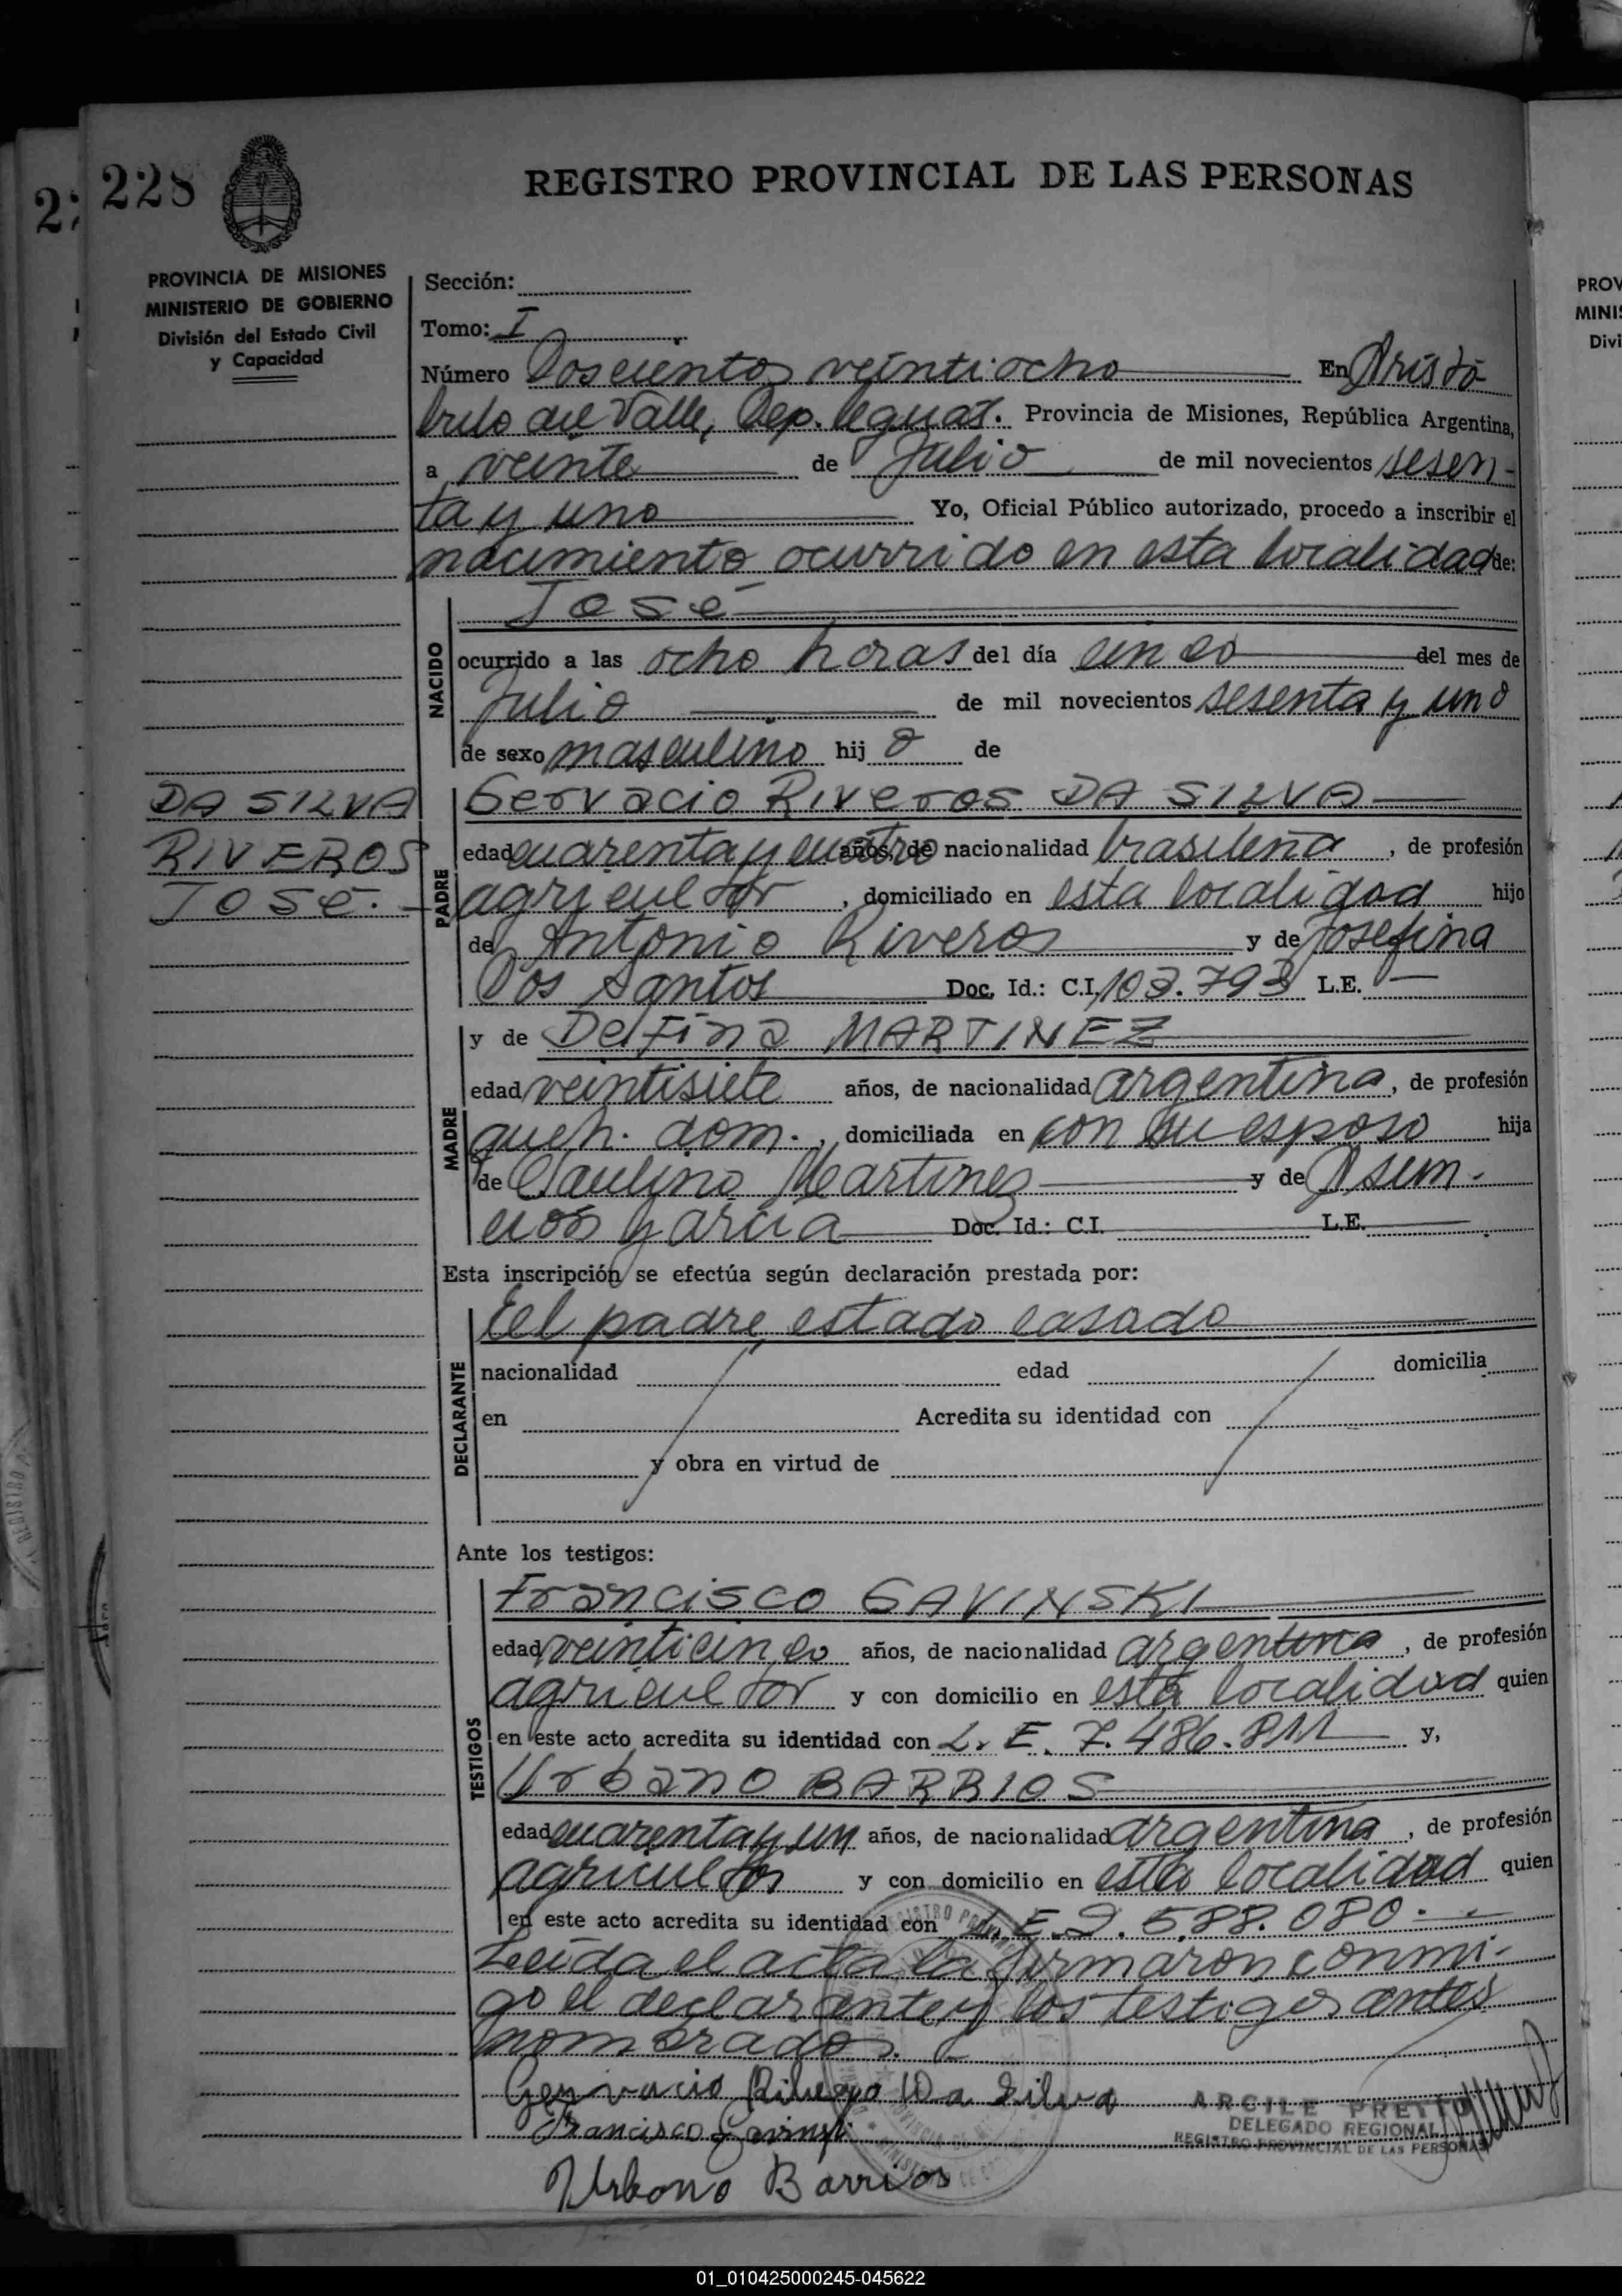 228
REGISTRO PROVINCIAL DE LAS PERSONAS
PROVINCIA DE MISIONES
MINISTERIO DE GOBIERNO
División del Estado Civil
y Capacidad
Sección:
Tomo: I
Número Doscientos veintiocho En Aristó
bulo del Valle, Dep. Cginguás. Provincia de Misiones, República Argentina,
a veinte de Julio de mil novecientos sesen-
ta y uno Yo, Oficial Público autorizado, procedo a inscribir el
nacimiento ocurrido en esta localidad de:
NACIDO
José
ocurrido a las ocho horas del día cinco del mes de
Julio de mil novecientos sesenta y uno
de sexo masculino hij o de
DA SILVA
RIVEROS
José.-
PADRE
Gervacio Riveros DA SILVA
edad cuarenta y cuatro años, de nacionalidad brasileña, de profesión
agricultor, domiciliado en esta localidad hijo
de Antonio Riveros y de Josefina
Dos Santos Doc. Id.: C.I. 103.793 L.E. —
MADRE
y de Delfina MARTINEZ
edad veintisiete años, de nacionalidad argentina, de profesión
queh. dom., domiciliada en con su esposo hija
de Paulino Martinez y de Asun-
ción García Doc. Id.: C.I. L.E.
Esta inscripción se efectúa según declaración prestada por:
DECLARANTE
El padre, estado casado
nacionalidad edad domicilia
en Acredita su identidad con
y obra en virtud de
Ante los testigos:
TESTIGOS
Francisco GAVINSKI
edad veinticinco años, de nacionalidad argentina, de profesión
agricultor y con domicilio en esta localidad quien
en este acto acredita su identidad con L. E. 7.486.811 y,
Urbano BARRIOS
edad cuarenta y un años, de nacionalidad argentina, de profesión
agricultor y con domicilio en esta localidad quien
en este acto acredita su identidad con L. E. 2.588.080.-
Leída el acta la firmaron conmi-
go el declarante y los testigos antes
nombrados.
Gervacio Da Silva
Francisco Gavinski
Urbano Barrios
ARCILE PRETTO
DELEGADO REGIONAL
REGISTRO PROVINCIAL DE LAS PERSONAS
PROV
MINIS
Divi
01_010425000245-045622